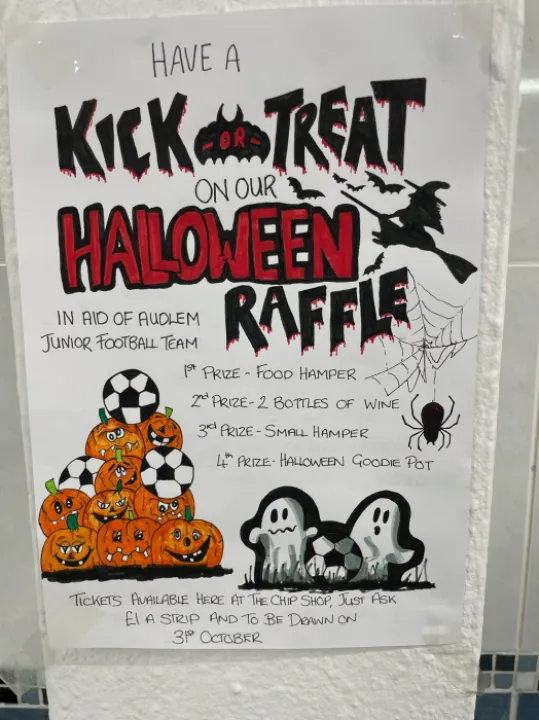 HAVE A
KICK OR TREAT
ON OUR
HALLOWEEN
RAFFLE
IN AID OF AUDLEM
JUNIOR FOOTBALL TEAM
1st PRIZE - FOOD HAMPER
2nd PRIZE - 2 BOTTLES OF WINE
3rd PRIZE - SMALL HAMPER
4th PRIZE - HALLOWEEN GOODIE POT
TICKETS AVAILABLE HERE AT THE CHIP SHOP, JUST ASK
£1 A STRIP AND TO BE DRAWN ON
31st OCTOBER